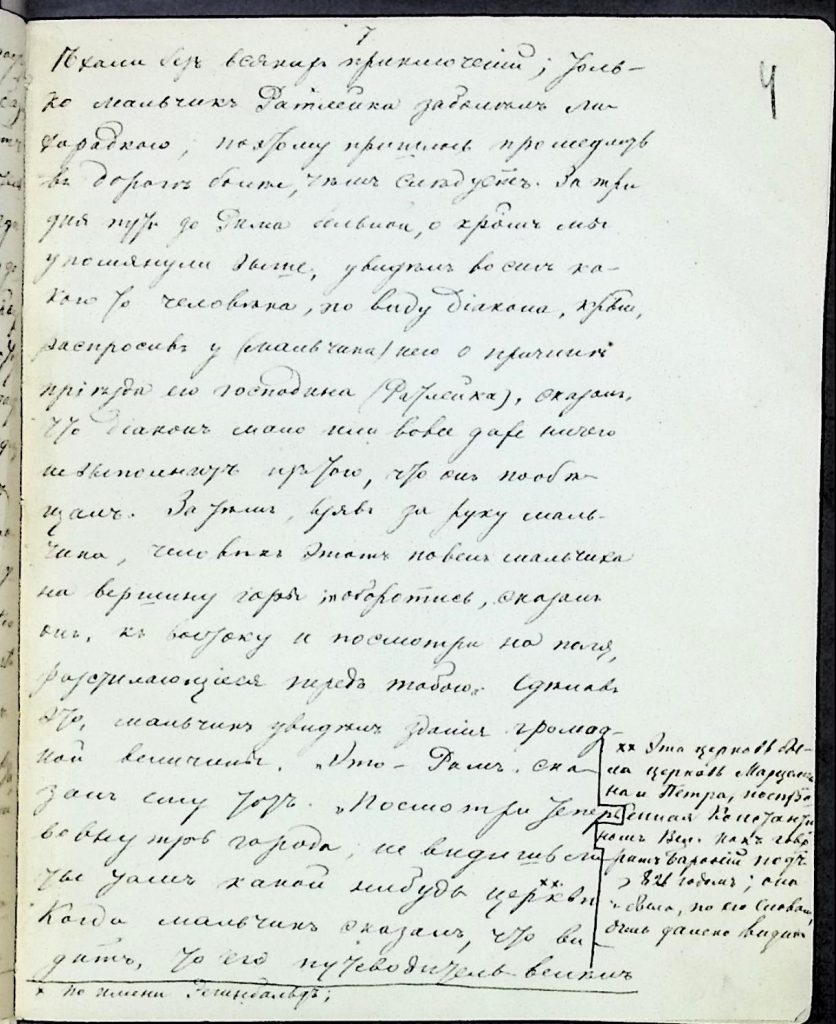 7
4
ѣхали безъ всякихъ приключеній; толь-
ко мальчикъ Ратлейка заболѣлъ ли-
хорадкою, поэтому пришлось промедлить
въ дорогѣ болѣе, чѣмъ слѣдуетъ. За три
дня пути до Рима больной, о кѣмъ мы
упомянули выше, увидѣлъ во снѣ ка-
кого то человѣка, по виду діакона, кѣый,
распросивъ у (мальчика) него о причинѣ
пріѣзда его господина (Ратлейка), сказалъ,
что діаконъ мало или вовсе даже ничего
не выполнитъ изъ того, что онъ пообѣ-
щалъ. Затѣмъ, взявъ за руку маль-
чика, человѣкъ этотъ повелъ мальчика
на вершину горы; „оборотись, сказалъ
онъ, къ востоку и посмотри на поля,
разстилающіеся передъ тобою“. Сдѣлавъ
это, мальчикъ увидѣлъ зданія громад-
ной величины. „Это – Римъ“, ска-
залъ ему тотъ. „Посмотри теперь
вовнутрь города, не видишь ли
ты тамъ какой нибудь церкви xx.“
Когда мальчикъ сказалъ, что ви-
дитъ, то его путеводитель велѣлъ
x по имени Регинбальдъ;
xx Эта церковь бы-
ла церковь Марцелли-
на и Петра, построе-
нная Константи-
номъ Вел. какъ гово-
ритъ Бароній подъ
826 годомъ; она
была, по его словамъ,
очень далеко видна